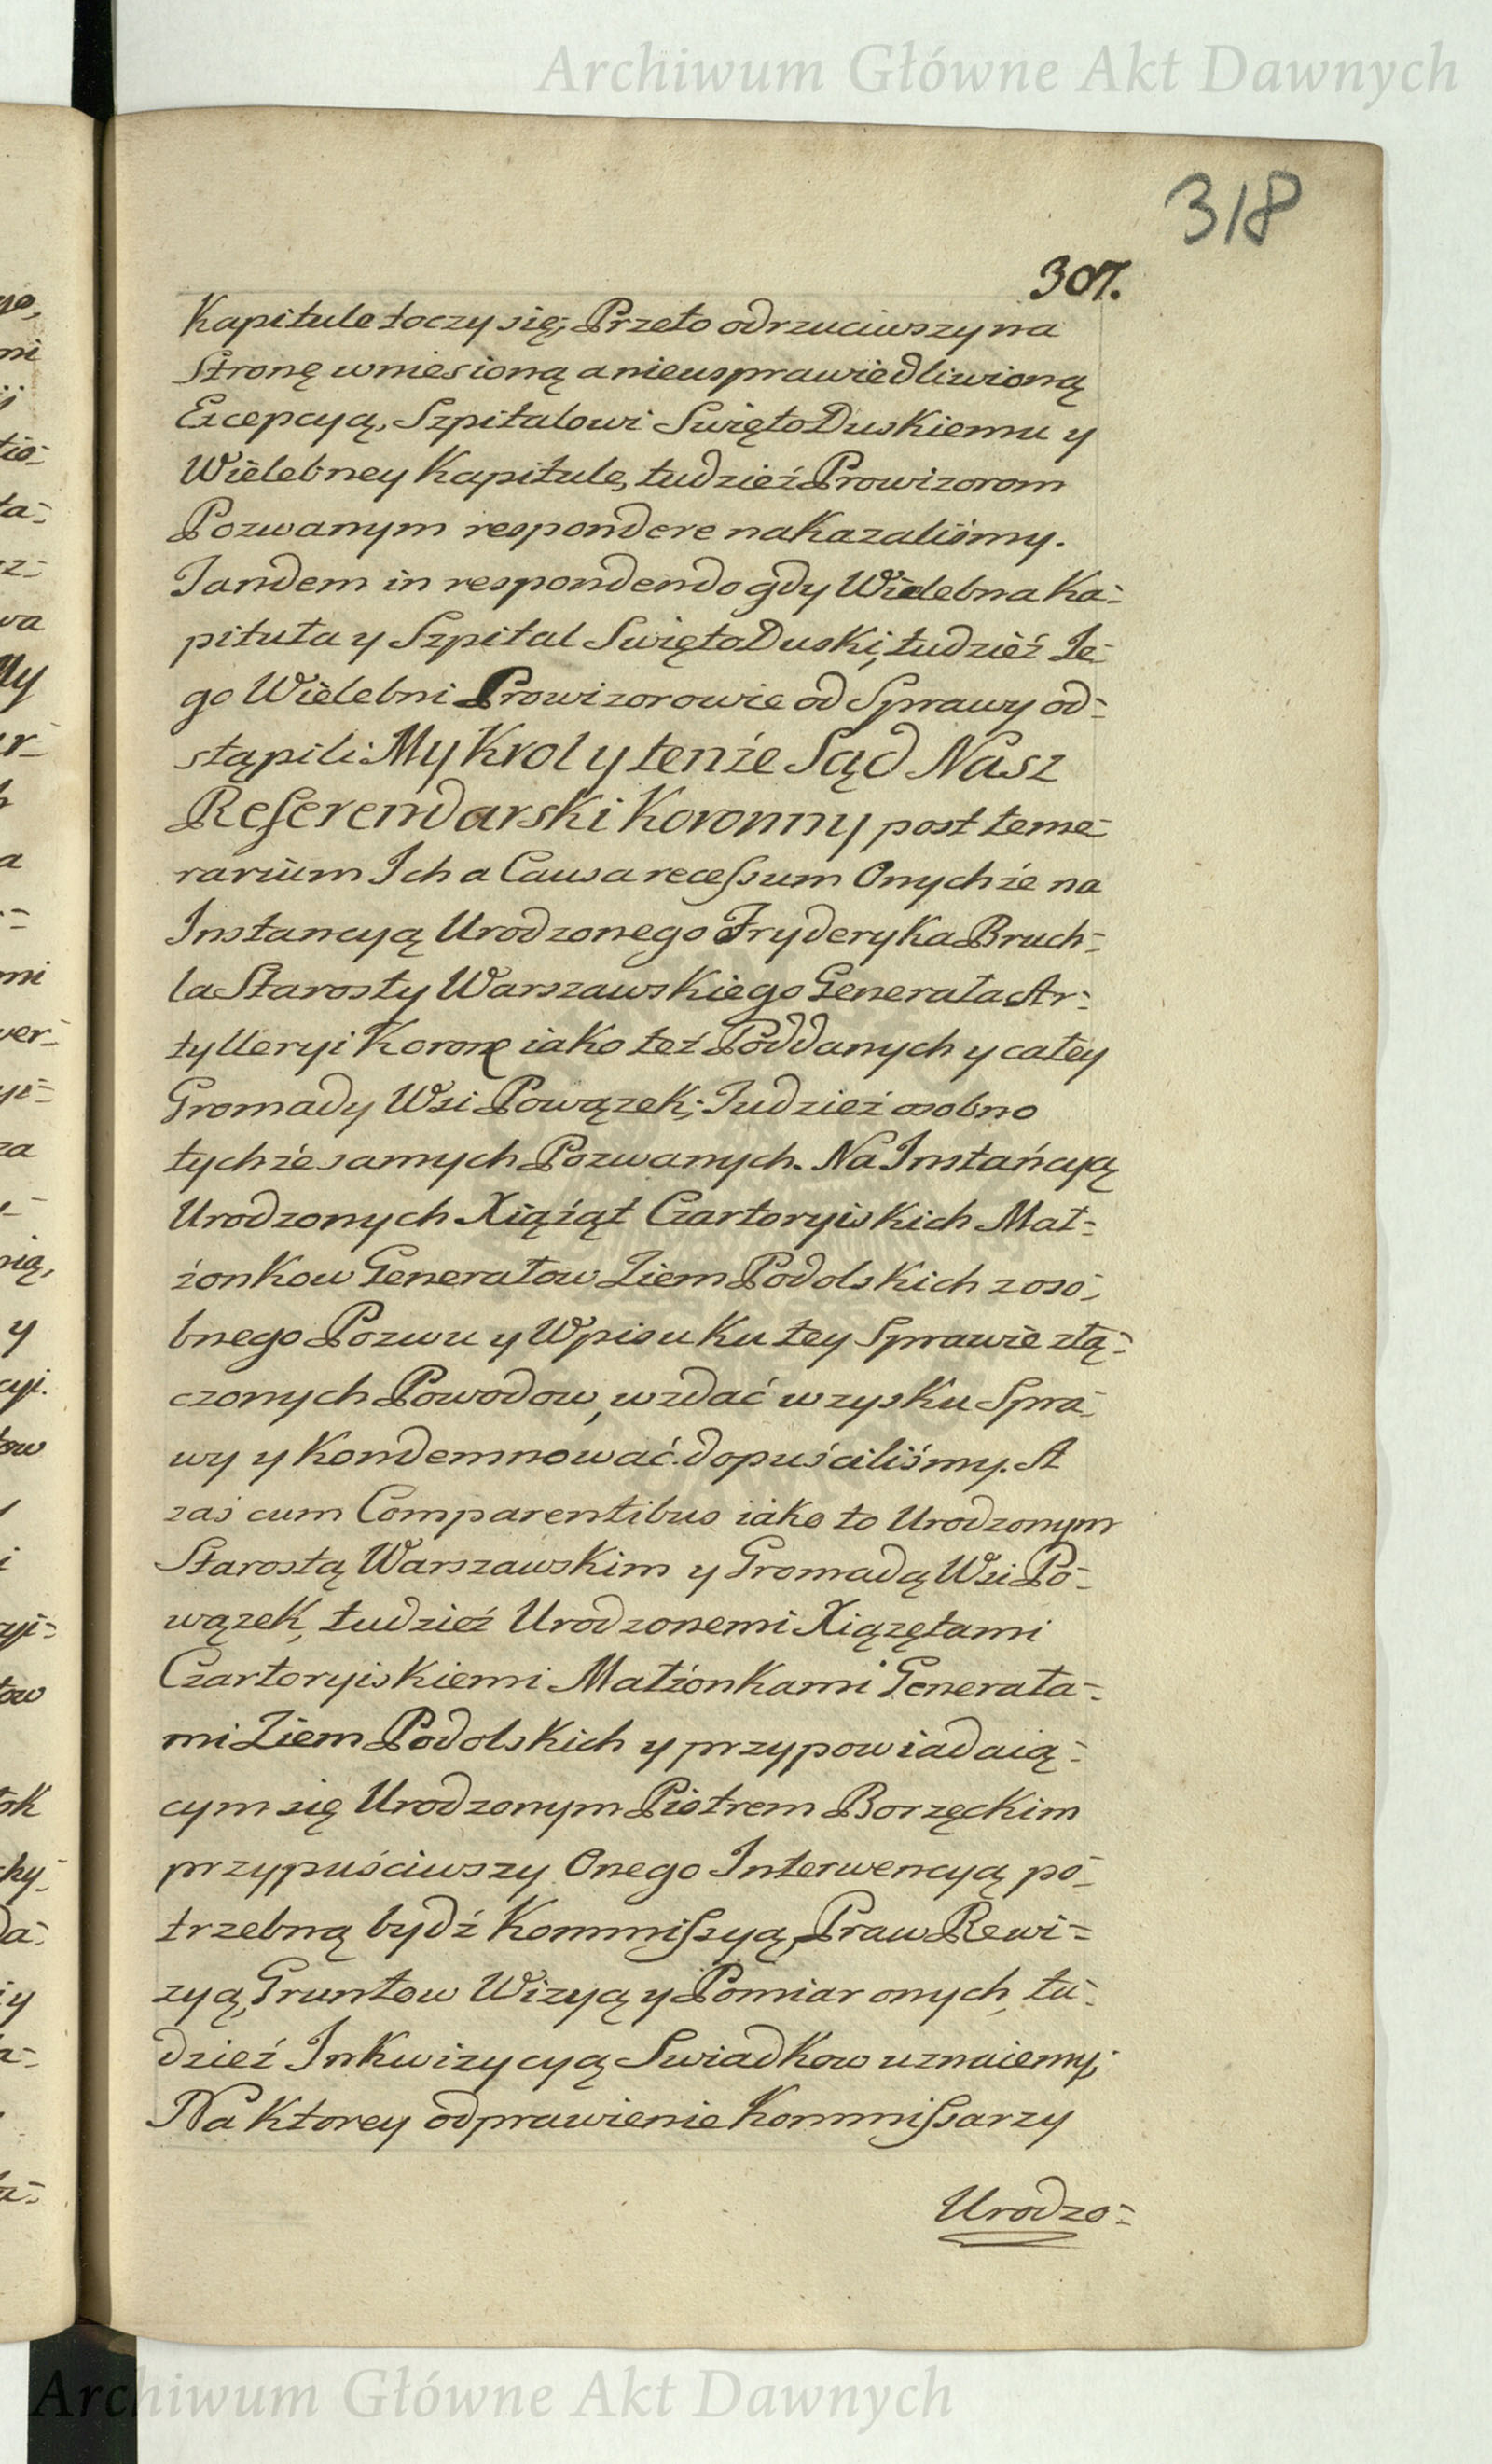 Archiwum Główne Akt Dawnych
318
307.
Kapitule toczy się; Przeto odrzuciwszy na
Stronę wniesioną a nieusprawiedliwioną
Excepcyą, Szpitalowi SwiętoDuskiemu y
Wielebney Kapitule, tudzież Prowizorom
Pozwanym respondere nakazaliśmy.
Tandem in respondendo gdy Wielebna Ka=
pituła y Szpital SwiętoDuski, tudzież Ie=
go Wielebni Prowizorowie od Sprawy od=
stąpili: My Krol y tenże Sąd Nasz
Referendarski Koronny post teme=
rarium Ich a Causa recessum Onychże na
Instancyą Urodzonego Fryderyka Bruch=
la Starosty Warszawskiego Generała Ar=
tylleryi Koronę iako też Poddanych y całey
Gromady Wsi Powązek; Tudzież osobno
tychże samych Pozwanych. Na Instáńcyą
Urodzonych Xiążąt Czartoryiskich Mał=
żonkow Generałow Ziem Podolskich z oso=
bnego Pozwu y Wpisu Ku tey Sprawie złą=
czonych Powodow, wzdać w zysku Spra=
wy y Kondemnować dopuściliśmy. A
zaś cum Comparentibus iako to Urodzonym
Starostą Warszawskim y Gromadą Wsi Po=
wązek, tudzież Urodzonemi Xiązętami
Czartoryiskiemi Małżonkami Generała=
mi Ziem Podolskich y przypowiadaią=
cym się Urodzonym Piotrem Borzęckim
przypuściwszy Onego Interwencyą po=
trzebną bydź Kommissyą, Praw Rewi=
zyą, Gruntow Wizyą y Pomiar onych, tu=
dzież Inkwizycyą Swiadkow uznaiemy;
Na Ktorey odprawienie Kommissarzy
Urodzo=
Archiwum Główne Akt Dawnych